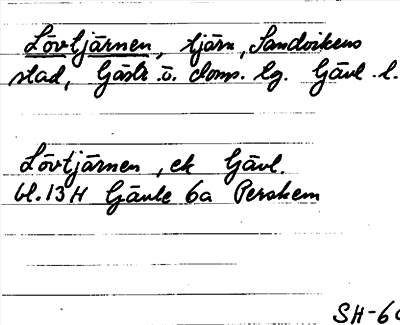 Lövtjärnen, tjärn, Sandvikens
stad, Gästr. ö. doms. lg. Gävl. l.
Lövtjärnen, ek Gävl.
bl. 13H Gävle 6a Perskem
SH-60